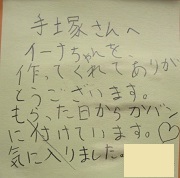 手土塚さんへ
イーナちゃんを、
作ってくれてありが
とうございます。
もらった日からカバン
に付けています。♡
気に入りました。